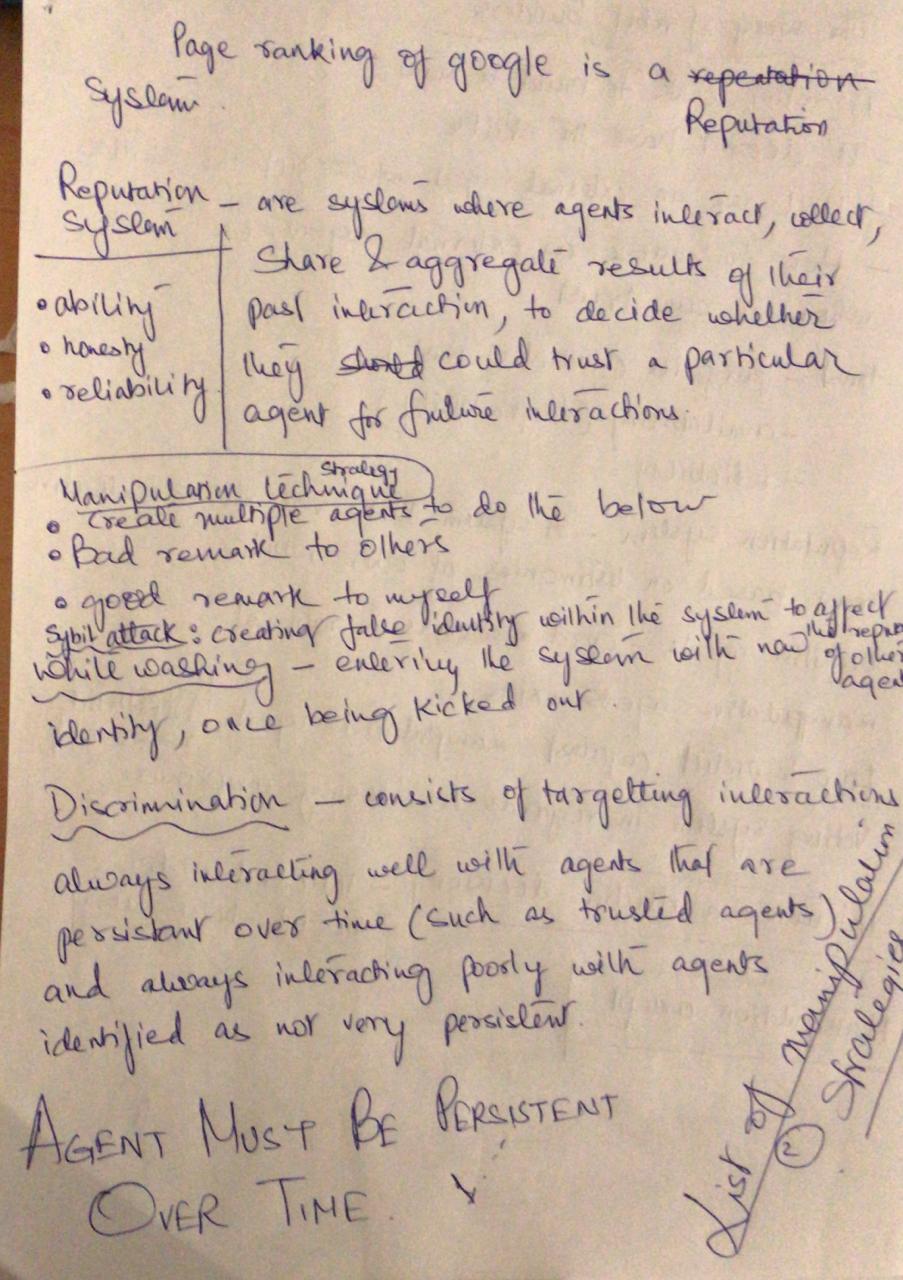 Page ranking of google is a repeatation
System.
Reputation
Reputation System - are systems where agents interact, collect,
Share & aggregate results of their
past interaction, to decide whether
they should could trust a particular
agent for future interactions.
• ability
• honesty
• reliability
Manipulation technique strategy
• create multiple agents to do the below
• Bad remark to others
• good remark to myself
Sybil attack: creating false identity within the system to affect
the repu
of other
agen
white washing - entering the system with new
identity, once being kicked out.
Discrimination - consists of targetting interactions
always interacting well with agents that are
persistant over time (such as trusted agents)
and always interacting poorly with agents
identified as not very persistent.
AGENT MUST BE PERSISTENT
OVER TIME.
List of manipulation
2 Strategies